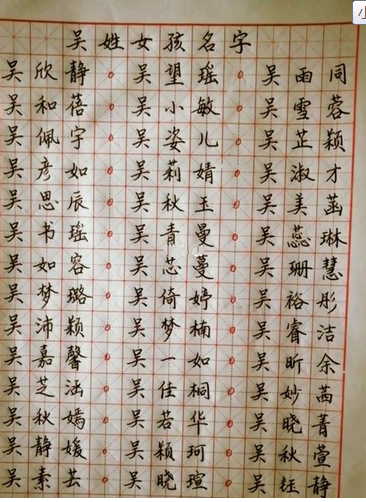 吴姓女孩名字
吴欣静 吴望瑶 吴雨同
吴和蓓 吴小敏 吴雪蓉
吴佩宇 吴姿儿 吴芷颖
吴彦如 吴莉婧 吴淑才
吴思辰 吴秋玉 吴美菡
吴书瑶 吴青曼 吴蕊琳
吴如容 吴芯蔓 吴珊慧
吴梦璐 吴倚婷 吴裕彤
吴沛颖 吴梦楠 吴睿洁
吴嘉馨 吴一如 吴昕余
吴芝涵 吴佳桐 吴妙茜
吴秋嫣 吴若华 吴晓菁
吴静媛 吴颖珂 吴秋萱
吴素芸 吴晓瑄 吴钰静